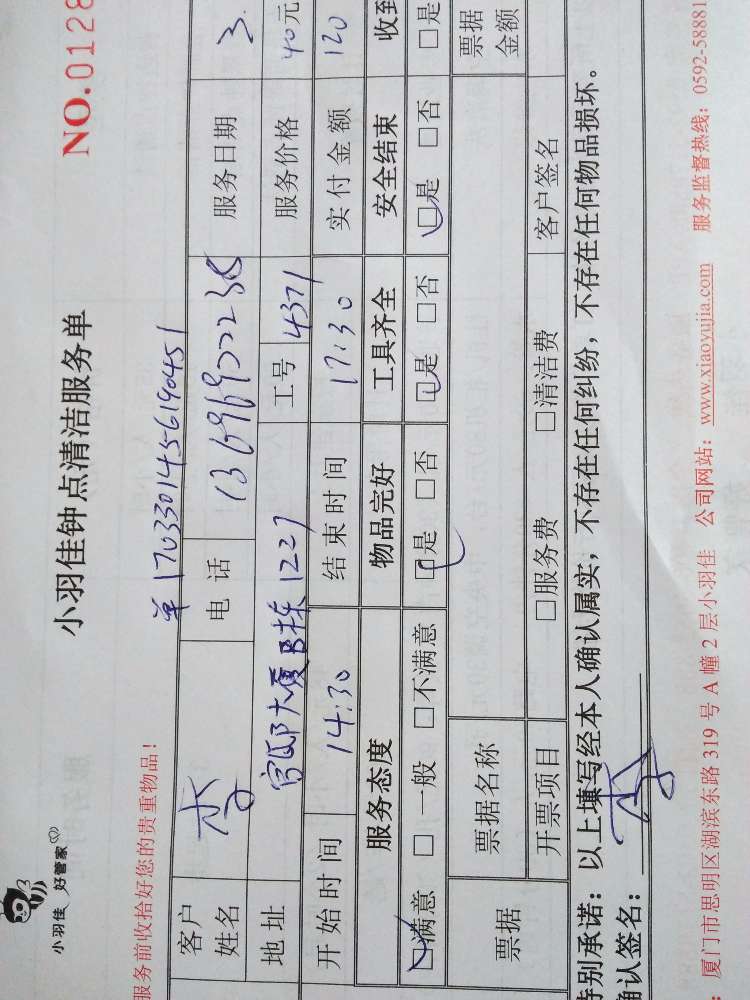 小羽佳 好管家
小羽佳钟点清洁服务单
NO.0128
服务前收拾好您的贵重物品!
单1703301456190451
客户姓名 李 电话 服务日期 3.
地址 B栋1227 工号 4371 服务价格 40元
开始时间 14:30 结束时间 17:30 实付金额 120
服务态度 物品完好 工具齐全 安全结束 收到
☑满意 □一般 □不满意 ☑是 □否 ☑是 □否 ☑是 □否 □是
票据 票据名称 票据金额
开票项目 □服务费 □清洁费 客户签名
特别承诺:以上填写经本人确认属实,不存在任何纠纷,不存在任何物品损坏。
确认签名:李
:厦门市思明区湖滨东路 319 号 A 幢 2 层小羽佳 公司网站:www.xiaoyujia.com 服务监督热线:0592-58881